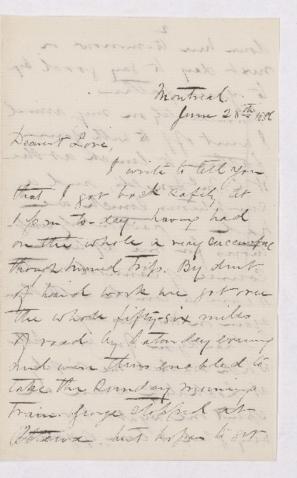 Montreal
June 28th 1886
Dearest Love,
I write to tell you
that I got back safely at
1 pm to-day having had
on the whole a very successful
though hurried trip. By dint
of hard work we got over
the whole fifty-six miles
of road by Saturday evening
and were thus enabled to
take the Sunday morning
train George stopped at
Ottawa but hopes to get